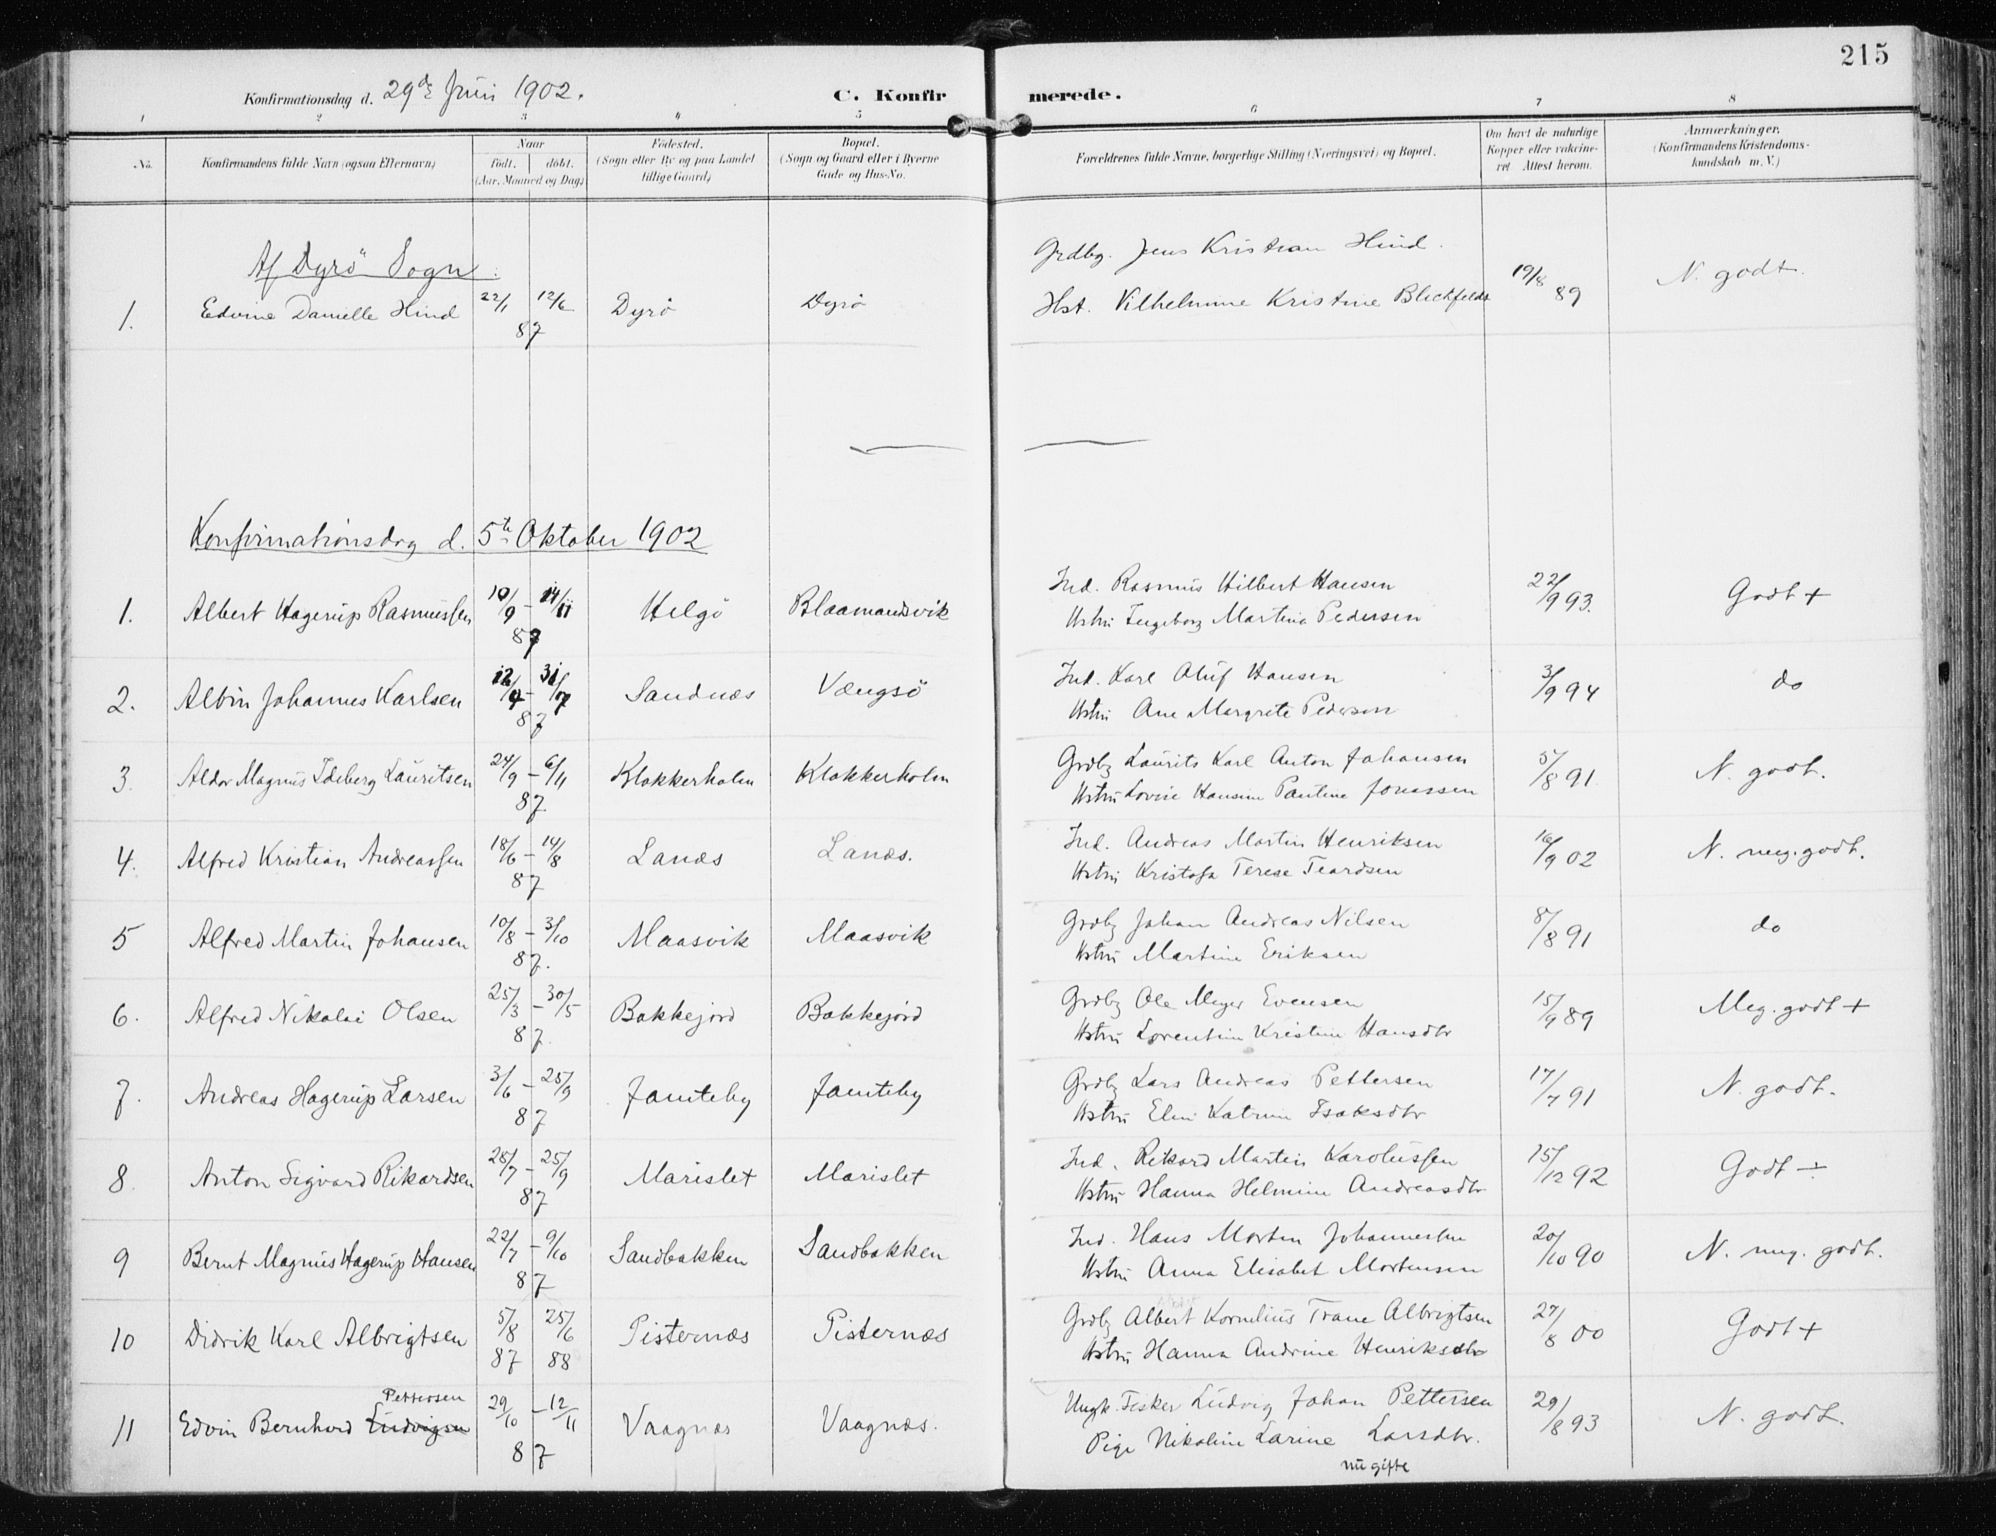 215
Konfirmationsdag d. 29de Juni 1902.
C. Konfirmerede.
1 2 3 4 5 6 7 8
No.
Konfirmandens fulde Navn (ogsaa Efternavn)
Naar
født. døbt.
(Aar, Maaned og Dag)
Fødested.
(Sogn eller By og paa Landet
tillige Gaard)
Bopæl.
(Sogn og Gaard eller i Byerne
Gade og Hus-No.
Forældrenes fulde Navne, borgerlige Stilling (Næringsvei) og Bopæl.
Om havt de naturlige
Kopper eller vakcine-
ret Attest herom.
Anmærkninger.
(Konfirmandens Kristendoms-
kundskab m. V.)
Af Dyrö Sogn.
1. Edvine Danielle Hind 22/1 12/6 87 Dyrö Dyrö
Grdbg. Jens Kristian Hind.
Hst. Vilhelmine Kristine Blickfeldt 19/8 89 N. godt.
Konfirmationsdag d. 5te Oktober 1902
1. Albert Hagerup Rasmussen 10/9 - 14/11 87 Helgö Blaamandsvik
Ind. Rasmus Hilbert Hansen
Hstru Ingeborg Martina Pedersen 22/9 93. Godt +
2. Albin Johannes Karlsen 87 Sandnæs Vængsö
Ind. Karl Oluf Hansen
Hstru Ane Margrete Pederson 3/9 94 do
3. Aldor Magnus Ideberg Lauritsen 24/9 - 6/11 87 Klokkerholm Klokkerholm
Grdbg Laurits Karl Anton Johansen
Hstru Lovise Hansine Pauline Jonassen 5/8 91. N. godt.
4. Alfred Kristian Andreassen 18/6 - 14/8 87 Lanæs Lanæs.
Ind. Andreas Martin Henriksen
Hstru Kristofa Terese Teardsen 16/9 02 N. meg. godt.
5 Alfred Martin Johansen 10/8 - 3/10 87. Maasvik Maasvik
Grdbg Johan Andreas Nilsen
Hstru Martine Eriksen 8/8 91 do
6. Alfred Nikolai Olsen 25/3 - 30/5 87. Bakkejord Bakkejord
Grdbg Ole Meyer Evensen
Hstru Lorentine Kristine Hansdtr 15/9 89 Meg. godt +
7. Andreas Hagerup Larsen 3/6 - 25/9 87 Jamteby Jamteby
Grdbg Lars Andreas Pettersen
Hstru Elen Katrine Isaksdtr 17/7 91 N. godt.
8. Anton Sigvard Rikardsen 28/7 - 25/9 87 Marislet Marislet
Ind. Rikard Martin Karolussen
Hstru Hanna Helmine Andreasdtr 15/12 92 Godt ÷
9 Bernt Magnus Hagerup Hansen 22/7 - 9/10 87 Sandbakken Sandbakken
Ind. Hans Morten Johannessen
Hstru Anna Elisabet Mortensen 20/10 90 N. meg. godt.
10 Didrik Karl Albrigtsen 5/8 87 25/6 88 Pisternæs Pisternæs
Grdbg Albert Kornelius Trane Albrigtsen
Hstru Hanna Andrine Henriksdtr 27/8 00 Godt +
Pettersen
11 Edvin Bernhard Ludvigsen 29/10 - 12/11 87 Vaagnæs Vaagnæs.
Ungk. Fisker Ludvig Johan Pettersen
Pige Nikoline Larine Larsdtr. 29/8 93 N. godt.
nu gifte